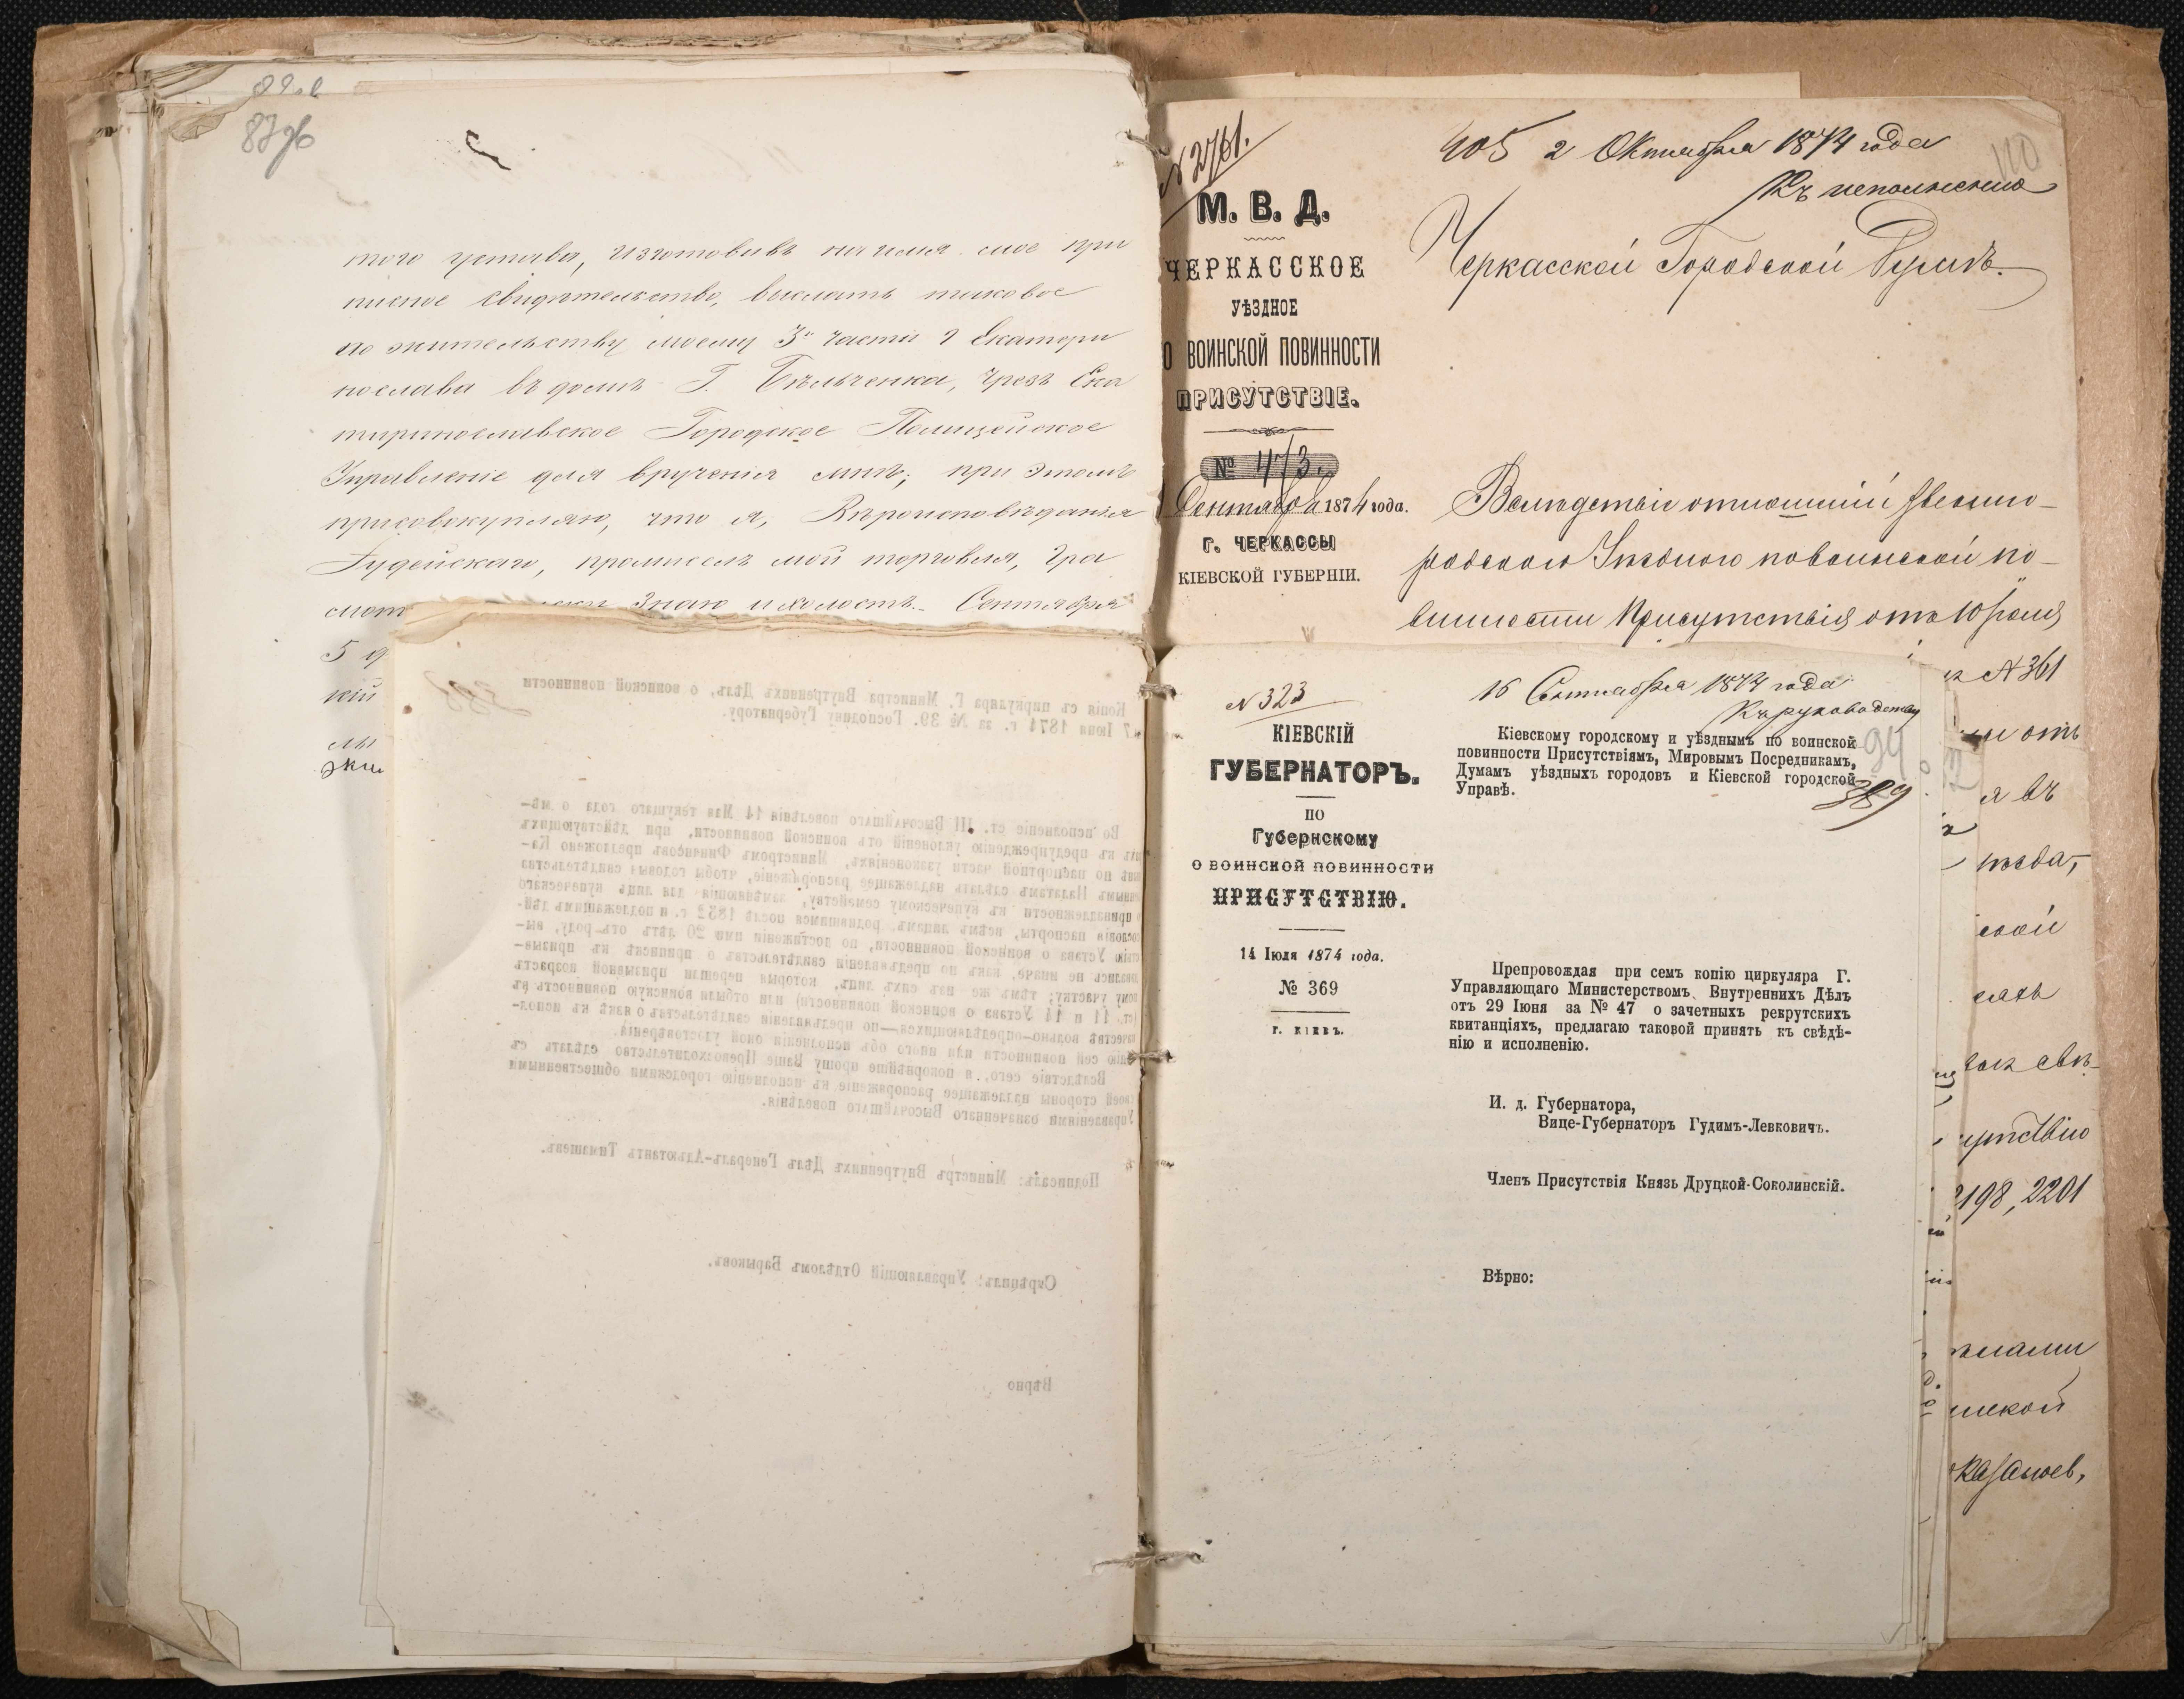 87 об
того устава, изготовивъ на имя мое при
писное свидѣтельство, выслать таковое
по жительству моему 3й части г Екатери
нослава въ домѣ Г. Бѣльченка, чрезъ Ека
теринославское Городское Полицейское
Управленіе для врученія мнѣ; при этомъ
присовокупляю, что я, Вѣроисповѣданія
Іудейскаго, промыселъ мой торговля, гра
знаю и холостъ. Сентября
5
кій
Копія съ циркуляра Г. Министра Внутреннихъ Дѣлъ, о воинской повинности
7 Іюня 1874 г. за № 39. Господину Губернатору.
Во исполненіе ст. III Высочайшаго повелѣнія 14 Мая текущаго года о мѣ-
къ предупрежденію уклоненій отъ воинской повинности, при дѣйствующихъ
по паспортной части узаконеніяхъ, Министромъ Финансовъ предложено Ка-
Палатамъ сдѣлать надлежащее распоряженіе, чтобы годовыя свидѣтельства
принадлежности къ купеческому семейству, замѣняющія для лицъ купеческаго
сословія паспорты, всѣмъ лицамъ, родившимся послѣ 1852 г. и подлежащимъ дѣй-
Устава о воинской повинности, по достиженіи ими 20 лѣтъ отъ роду, вы-
не иначе, какъ по предъявленіи свидѣтельствъ о припискѣ къ призыв-
участку; тѣмъ же изъ сихъ лицъ, которыя перешли призывной возрастъ
11 и 14 Устава о воинской повинности) или отбыли воинскую повинность въ
вольно-опредѣляющихся—по предъявленіи свидѣтельствъ о явкѣ къ испол-
сей повинности или иного объ исполненіи оной удостовѣренія.
Вслѣдствіе сего, я покорнѣйше прошу Ваше Превосходительство сдѣлать съ
своей стороны надлежащее распоряженіе къ исполненію городскими общественными
Управленіями означеннаго Высочайшаго повелѣнія.
Подписалъ: Министръ Внутреннихъ Дѣлъ Генералъ-Адъютантъ Тимашевъ.
Скрѣпилъ: Управляющій Отдѣломъ Барыковъ.
Вѣрно
№ 2761.
405 2 Октября 1874 года
110
Къ исполненію
М. В. Д.
ЧЕРКАССКОЕ
УѢЗДНОЕ
О ВОИНСКОЙ ПОВИННОСТИ
ПРИСУТСТВІЕ.
№ 473.
Сентября 1874 года.
Г. ЧЕРКАССЫ
КІЕВСКОЙ ГУБЕРНІИ.
Черкасской Городской Думѣ.
Вслѣдствіе отношеній Звенино-
родскаго Уѣзднаго по воинской по-
винности Присутствія отъ 10 Іюля
№ 361
отъ
я въ
ской
2198, 2201
№ 323
16 Сентября 1874 года
Къ руководству
КІЕВСКІЙ
ГУБЕРНАТОРЪ.
ПО
Губернскому
О ВОИНСКОЙ ПОВИННОСТИ
ПРИСУТСТВІЮ.
14 Іюля 1874 года.
№ 369
Г. КІЕВЪ.
Кіевскому городскому и уѣзднымъ по воинской
повинности Присутствіямъ, Мировымъ Посредникамъ,
Думамъ уѣздныхъ городовъ и Кіевской городской
Управѣ.
94
389
Препровождая при семъ копію циркуляра Г.
Управляющаго Министерствомъ Внутреннихъ Дѣлъ
отъ 29 Іюня за № 47 о зачетныхъ рекрутскихъ
квитанціяхъ, предлагаю таковой принять къ свѣдѣ-
нію и исполненію.
И. д. Губернатора,
Вице-Губернаторъ Гудимъ-Левковичъ.
Членъ Присутствія Князь Друцкой-Соколинскій.
Вѣрно: